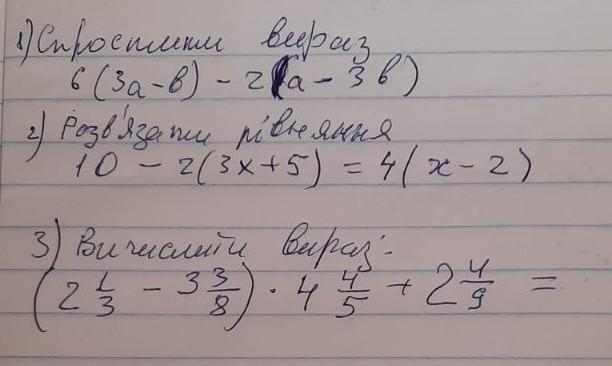 1) Спростити вираз
6(3a-b) - 2(a - 3b)
2) Розв'язати рівняння
10 - 2(3x+5) = 4(x-2)
3) Вичислити вираз.
(2 1/3 - 3 3/8) · 4 4/5 + 2 4/9 =